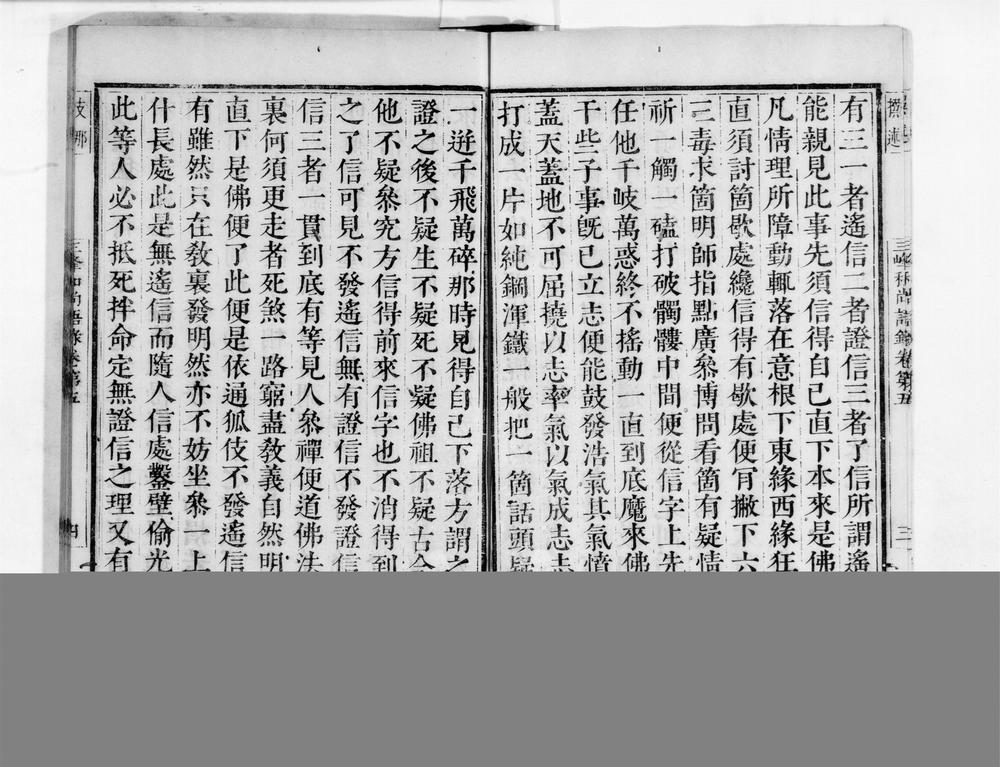 有三一者遙信二者證信三者了信所謂遙
能親見此事先須信得自己直下本來是佛
凡情理所障動輒落在意根下東緣西緣狂
直須討箇歇處纔信得有歇處便肯撇下六
三毒求箇明師指點廣參博問看箇有疑情
祈一觸一磕打破髑髏中間便從信字上先
任他千岐萬惑終不搖動一直到底魔來佛
干些子事旣已立志便能鼓發浩氣其氣憤
蓋天蓋地不可屈撓以志率氣以氣成志志
打成一片如純鋼渾鐵一般把一箇話頭疑
一迸千飛萬碎那時見得自己下落方謂之
證之後不疑生不疑死不疑佛祖不疑古今
他不疑參究方信得前來信字也不消得到
之了信可見不發遙信無有證信不發證信
信三者一貫到底有等見人參禪便道佛法
裏何須更走者死煞一路窮盡敎義自然明
直下是佛便了此便是依通狐伎不發遙信
有雖然只在敎裏發明然亦不妨坐參一上
什長處此是無遙信而隨人信處鑿壁偷光
此等人必不抵死拌命定無證信之理又有
三峰和尚語錄卷第五
三
三峰和尚語錄卷第五
四
支那
撰述